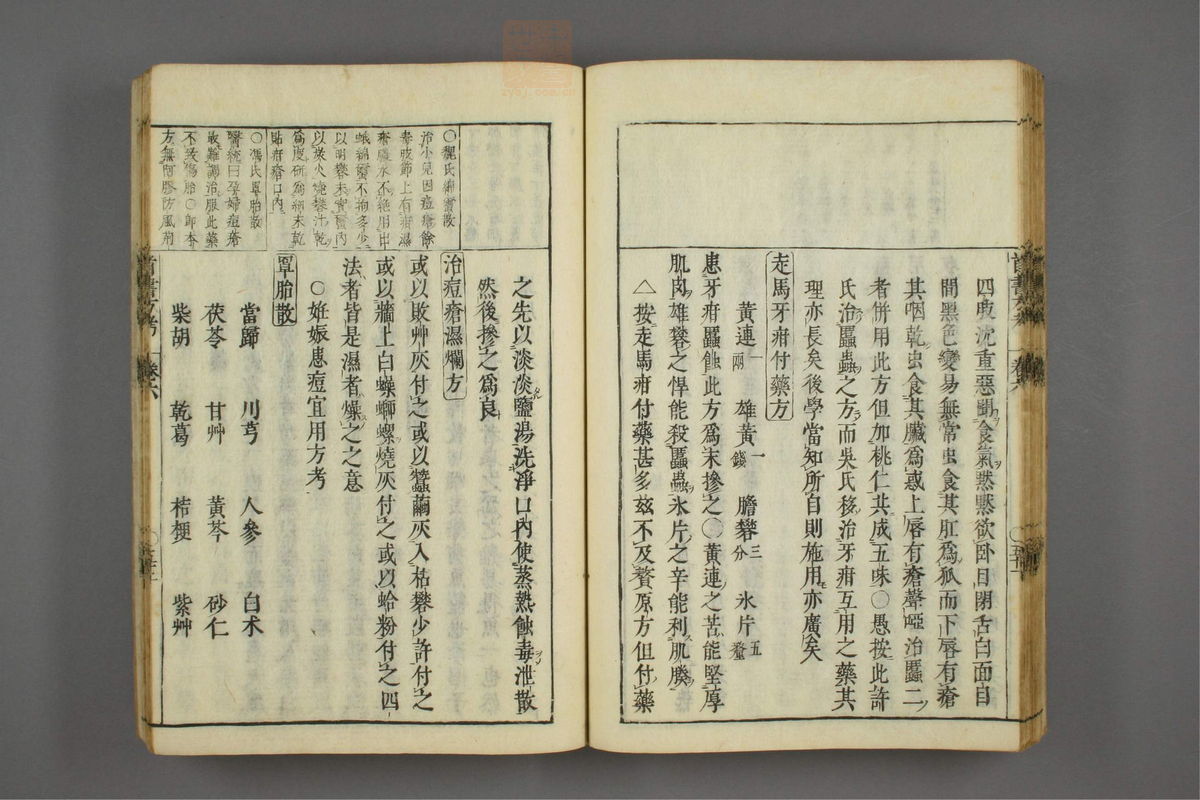 四肢沈重惡聞食氣黙黙欲卧目閉舌白面目
間黑色變易無常虫食其肛爲狐而下唇有瘡
其咽乾虫食其臟爲惑上唇有瘡聲啞治䘌二
者併用此方但加桃仁共成五味〇愚按此許
氏治䘌蟲之方而吳氏移治牙疳互用之藥其
理亦長矣後學當知所自則施用亦廣矣
走馬牙疳付藥方
黄連一兩 雄黄一錢 膽礬三分 氷片五釐
患牙疳䘌蝕此方爲末摻之〇黄連之苦能堅厚
肌肉雄礬之悍能殺䘌蟲氷片之辛能利肌腠
△按走馬疳付藥甚多兹不及贅原方但付藥
之先以淡淡鹽湯洗淨口內使蒸熱蝕毒泄散
然後摻之爲良
治痘瘡濕爛方
或以敗艸灰付之或以蠶繭灰入枯礬少許付之
或以牆上白螺螄螺燒灰付之或以蛤粉付之四
法者皆是濕者燥之之意
〇姙娠患痘宜用方考
罩胎散
當歸 川芎 人參 白朮
茯苓 甘艸 黃芩 砂仁
柴胡 乾葛 桔梗 紫艸
〇魏氏綿蠒散
治小兒因痘瘡餘
毒肢節上有疳濕
瘡膿水不絶用出
蛾綿蠒不拘多少
以明礬末實蠒內
以炭火燒礬汁乾
爲度硏爲細末乾
貼疳瘡口內
〇馮氏罩胎散
醫統曰孕婦痘瘡
最難調治服此藥
不致傷胎〇即本
方無阿膠防風荊
首書方考 卷六